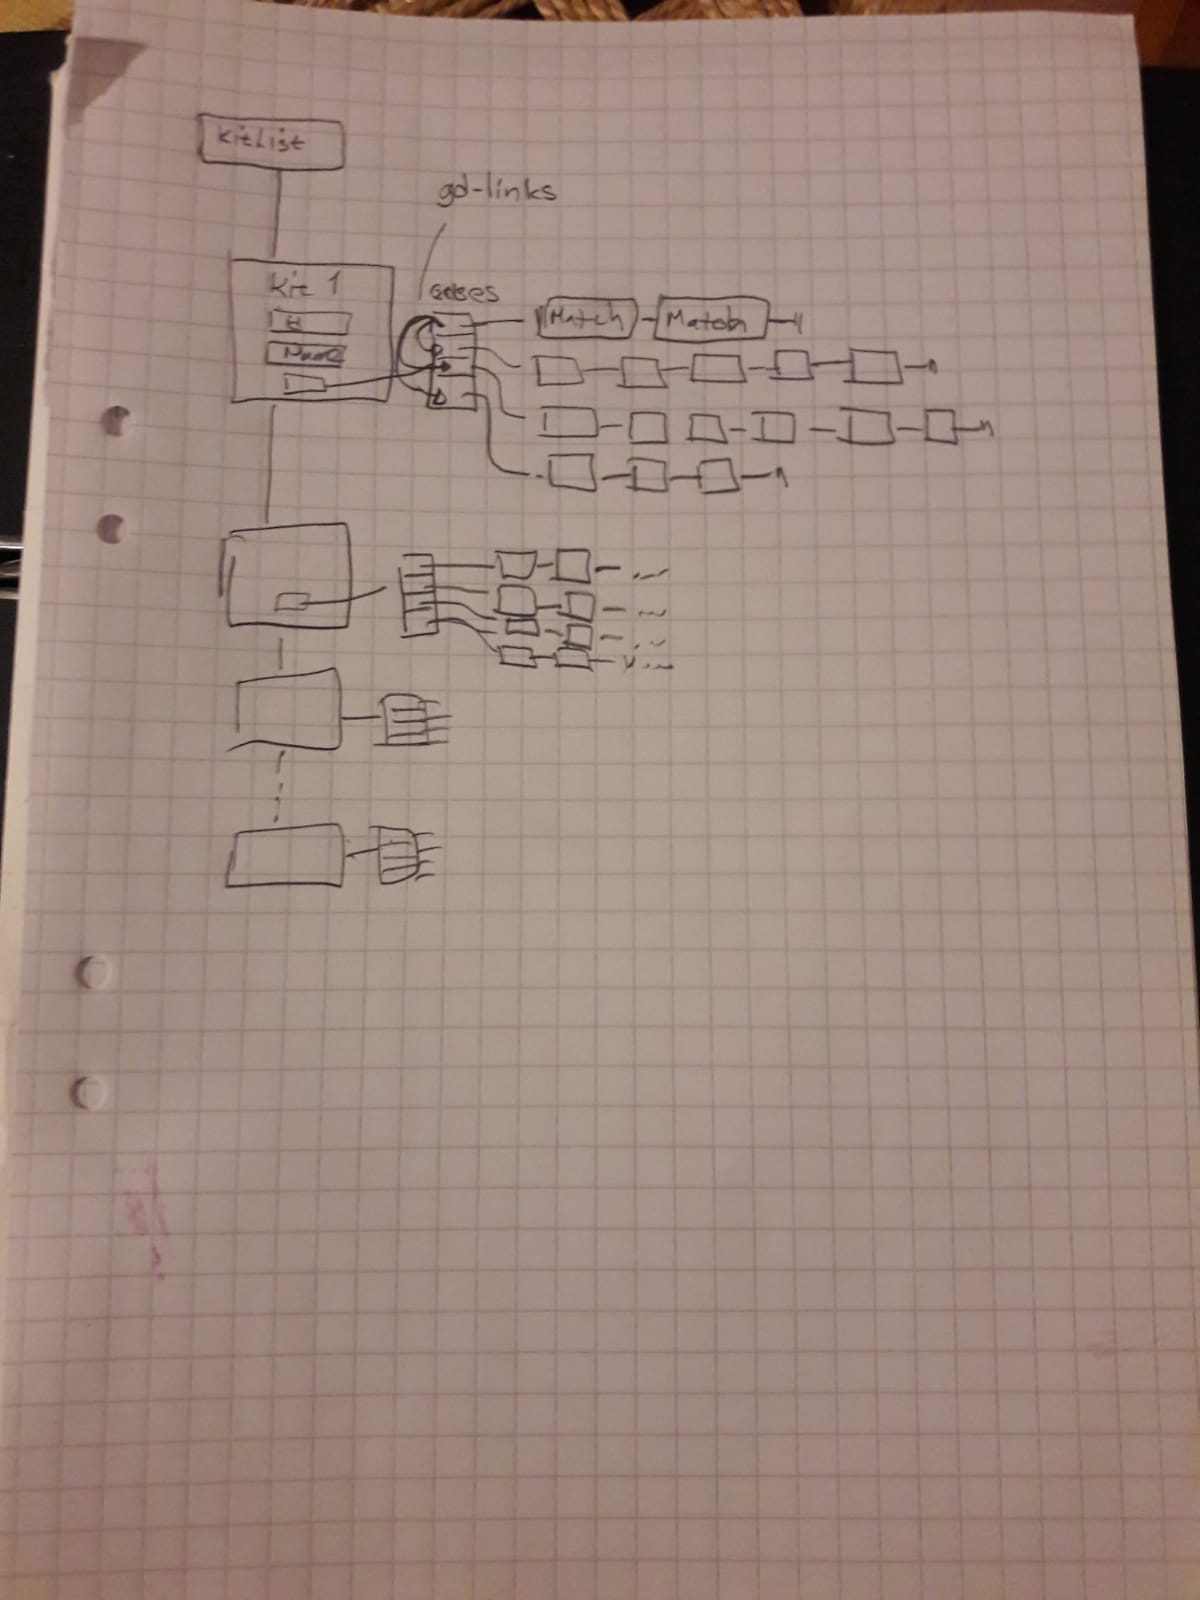 KitList
gd-links
Kit 1
Name
Match
Match